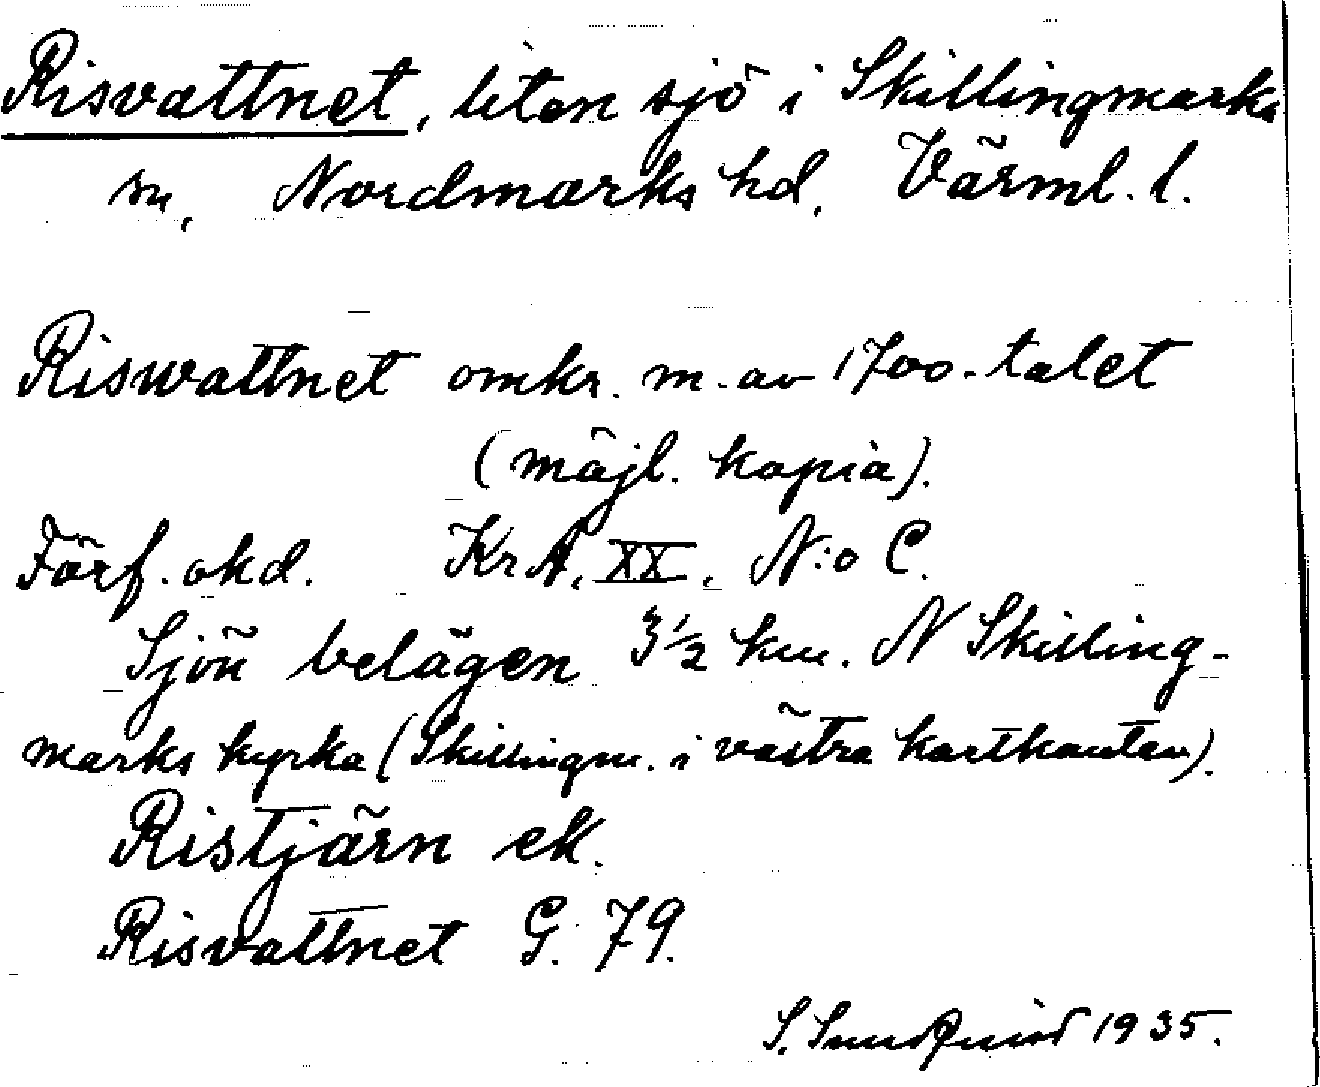 Risvattnet, liten sjö i Skillingmarks
sn, Nordmarks hd, Värml. l.
Riswattnet omkr. m. av 1700-talet
(möjl. kopia).
Förf. okd. KrA, XX, N:o C.
Sjön belägen 3 1/2 km. N Skilling-
marks kyrka (Skillingm. i västra kartkanten).
Ristjärn ek.
Risvattnet G. 79.
S. Sundquist 1935.